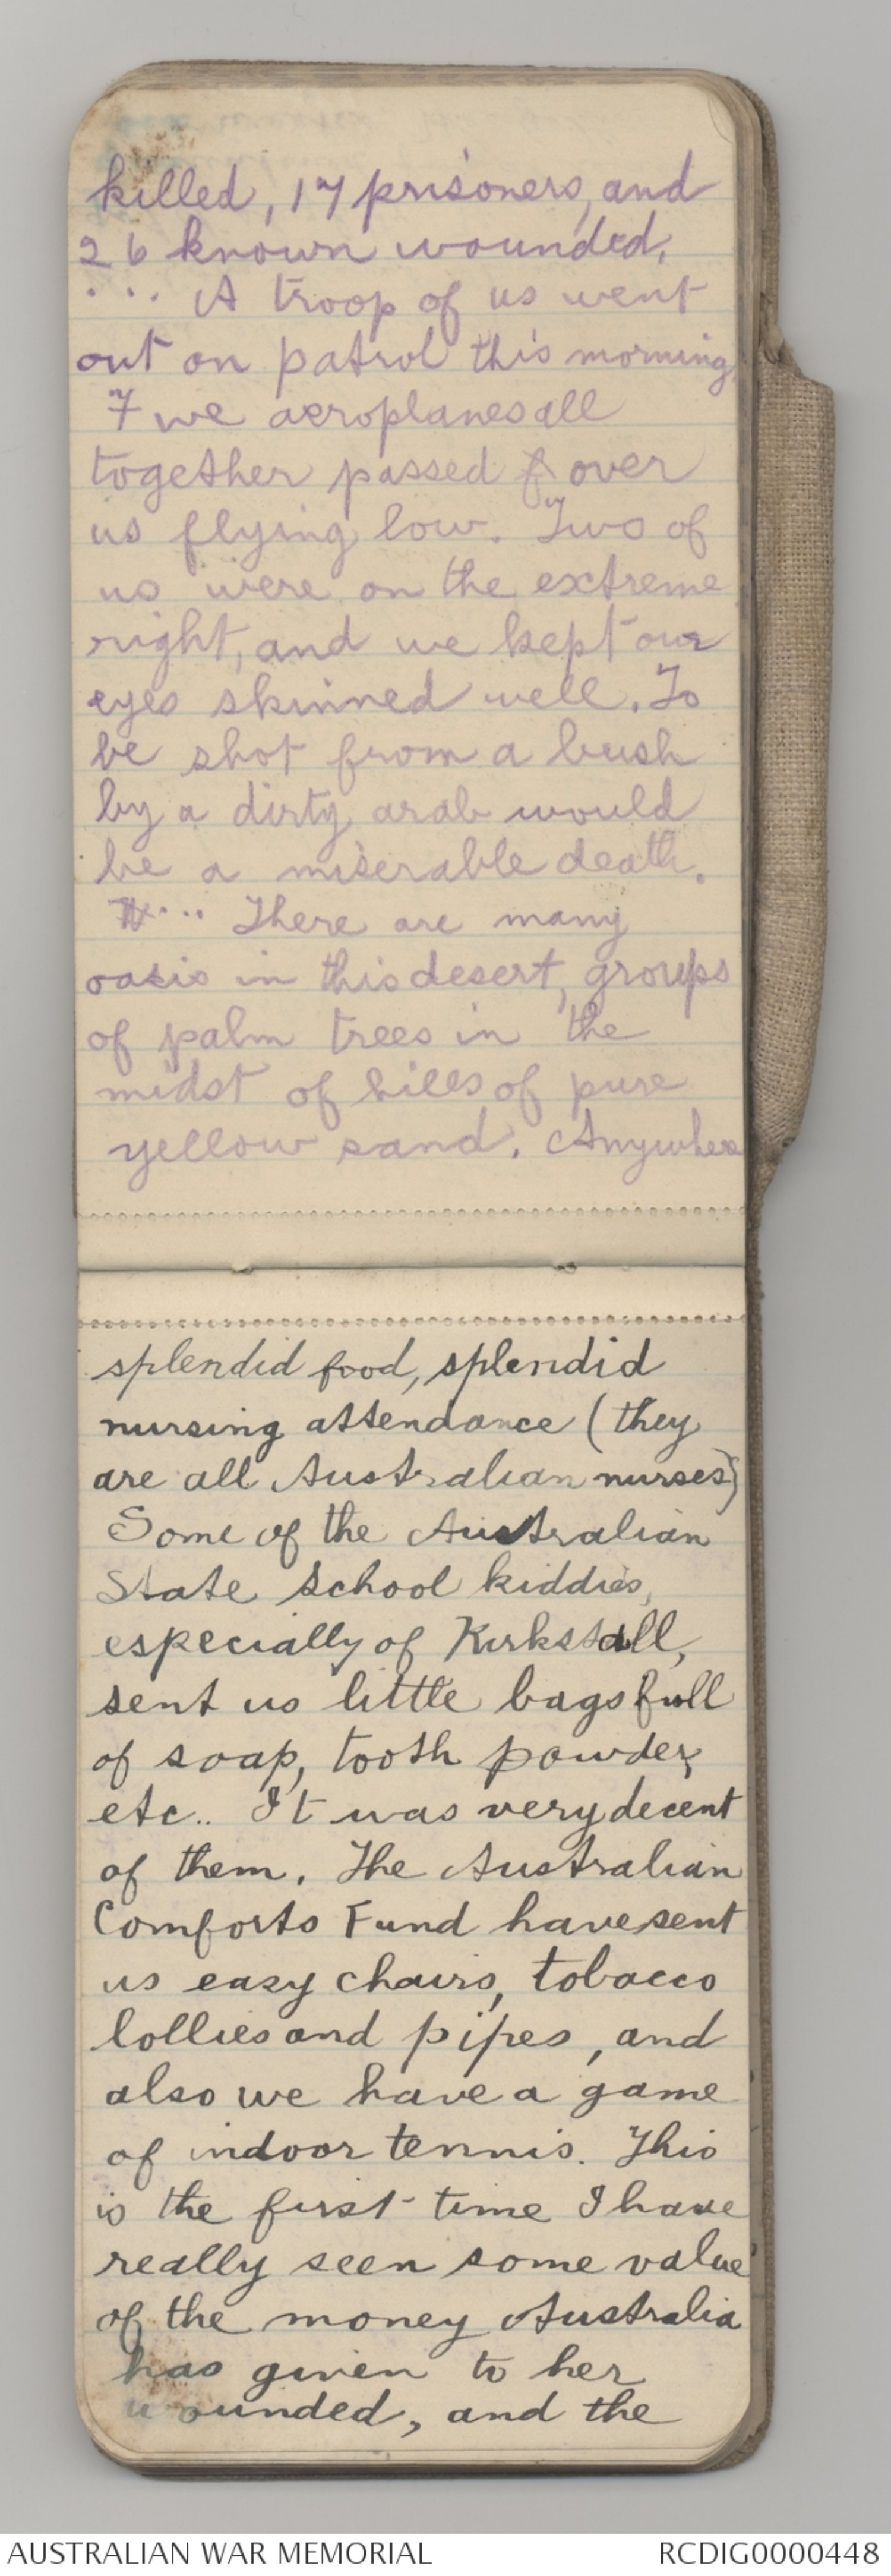 killed, 17 prisoners, and
26 known wounded.
... A troop of us went
out on patrol this morning
7 we aeroplanes all
together passed over
us flying low. Two of
us were on the extreme
right, and we kept our
eyes skinned well. To
be shot from a bush
by a dirty arab would
be a miserable death.
... There are many
oasis in this desert, groups
of palm trees in the
midst of hills of pure
yellow sand. Anywhere
splendid food, splendid
nursing attendance (they
are all Australian nurses)
Some of the Australian
State School kiddies,
especially of Kirkstall,
sent us little bags full
of soap, tooth powder,
etc.. It was very decent
of them. The Australian
Comforts Fund have sent
us easy chairs, tobacco
lollies and pipes, and
also we have a game
of indoor tennis. This
is the first time I have
really seen some value
of the money Australia
has given to her
wounded, and the
AUSTRALIAN WAR MEMORIAL
RCDIG0000448